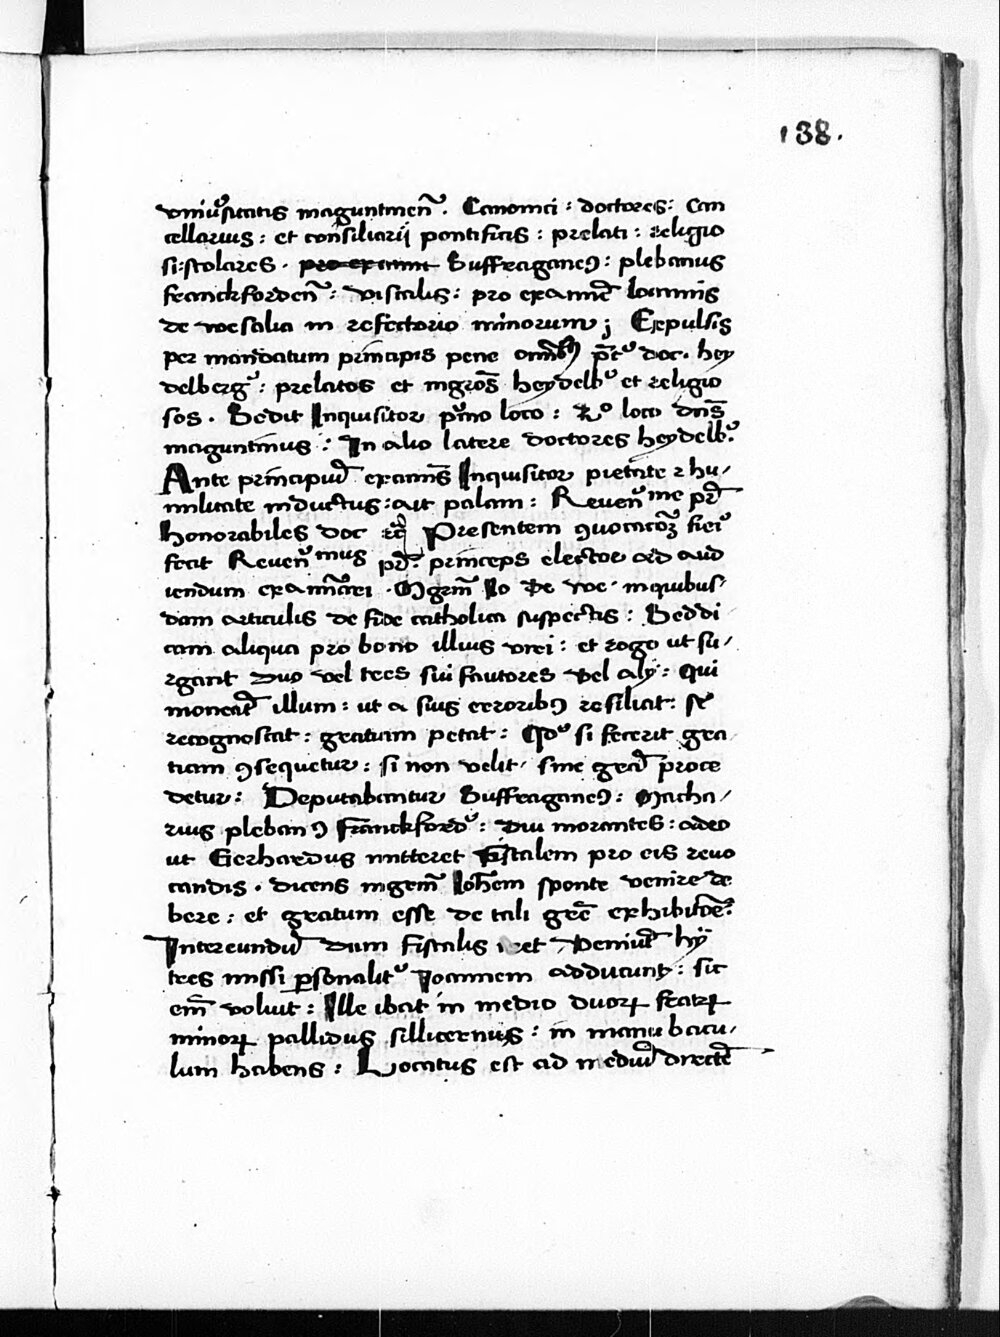 138.
vniũsitatis maguntineñ. Canonici : doctores : Can
cellarius : et consiliarij pontificis : prelati : religio
si : scolares . pro examine Suffraganeꝯ : plebanus
franckfordeñ : viscalis : pro examiē Ioannis
de wesalia in refectorio minorum ; Expulsis
per mandatum principis pene doc. hey
delberg : prelatos et mgrōs heydelb et religio
sos . Sedit Inquisitor pͥmo loco : 2º loco dn̄s
maguntinus : In alio latere doctores heydelb.
Ante principiū examīs Inquisitor pietate ⁊ hu/
militate inductus : ait palam : Reuen me pr̄
honorabiles doc ⁊c̄ Presentem ꝯuocacoꝫ fiei
fecit Reuen mus pr̄. princeps elector ad aud
iendum examīari . Mgrm̄ Io de we . in quibus/
dam articulis de fide catholica suspectis : Seddi
cam aliqua pro bono illius vrei : et rogo ut su/
rgant duo vel tres sui fautores vel alij : Qui
moneāt illum : ut a suis erroribꝯ resiliat : se
recognoscat : gratiam petat : Qd si fecerit gra
tiam ꝯsequetur : si non velit / sine grā proce
detur : Deputabantur Suffraganeꝯ : Macha/
rius plebanꝯ franckford : diu morantes : adeo
ut Gerhardus mitteret fiscalem pro eis reuo
candis . dicens mgrm̄ Ioh̄em sponte venire de
bere : et gratum esse de tali grē exhibitōe.
Intereundū dum fiscalis iret veniūt hÿ
tres missi ꝑsonalit Ioannem adducunt : sic
em̄ voluit : Ille ibat in medio duorꝝ fratrꝝ
minorꝝ pallidus sillicernus : in manu bacu/
lum habens : Locatus est ad mediū directē